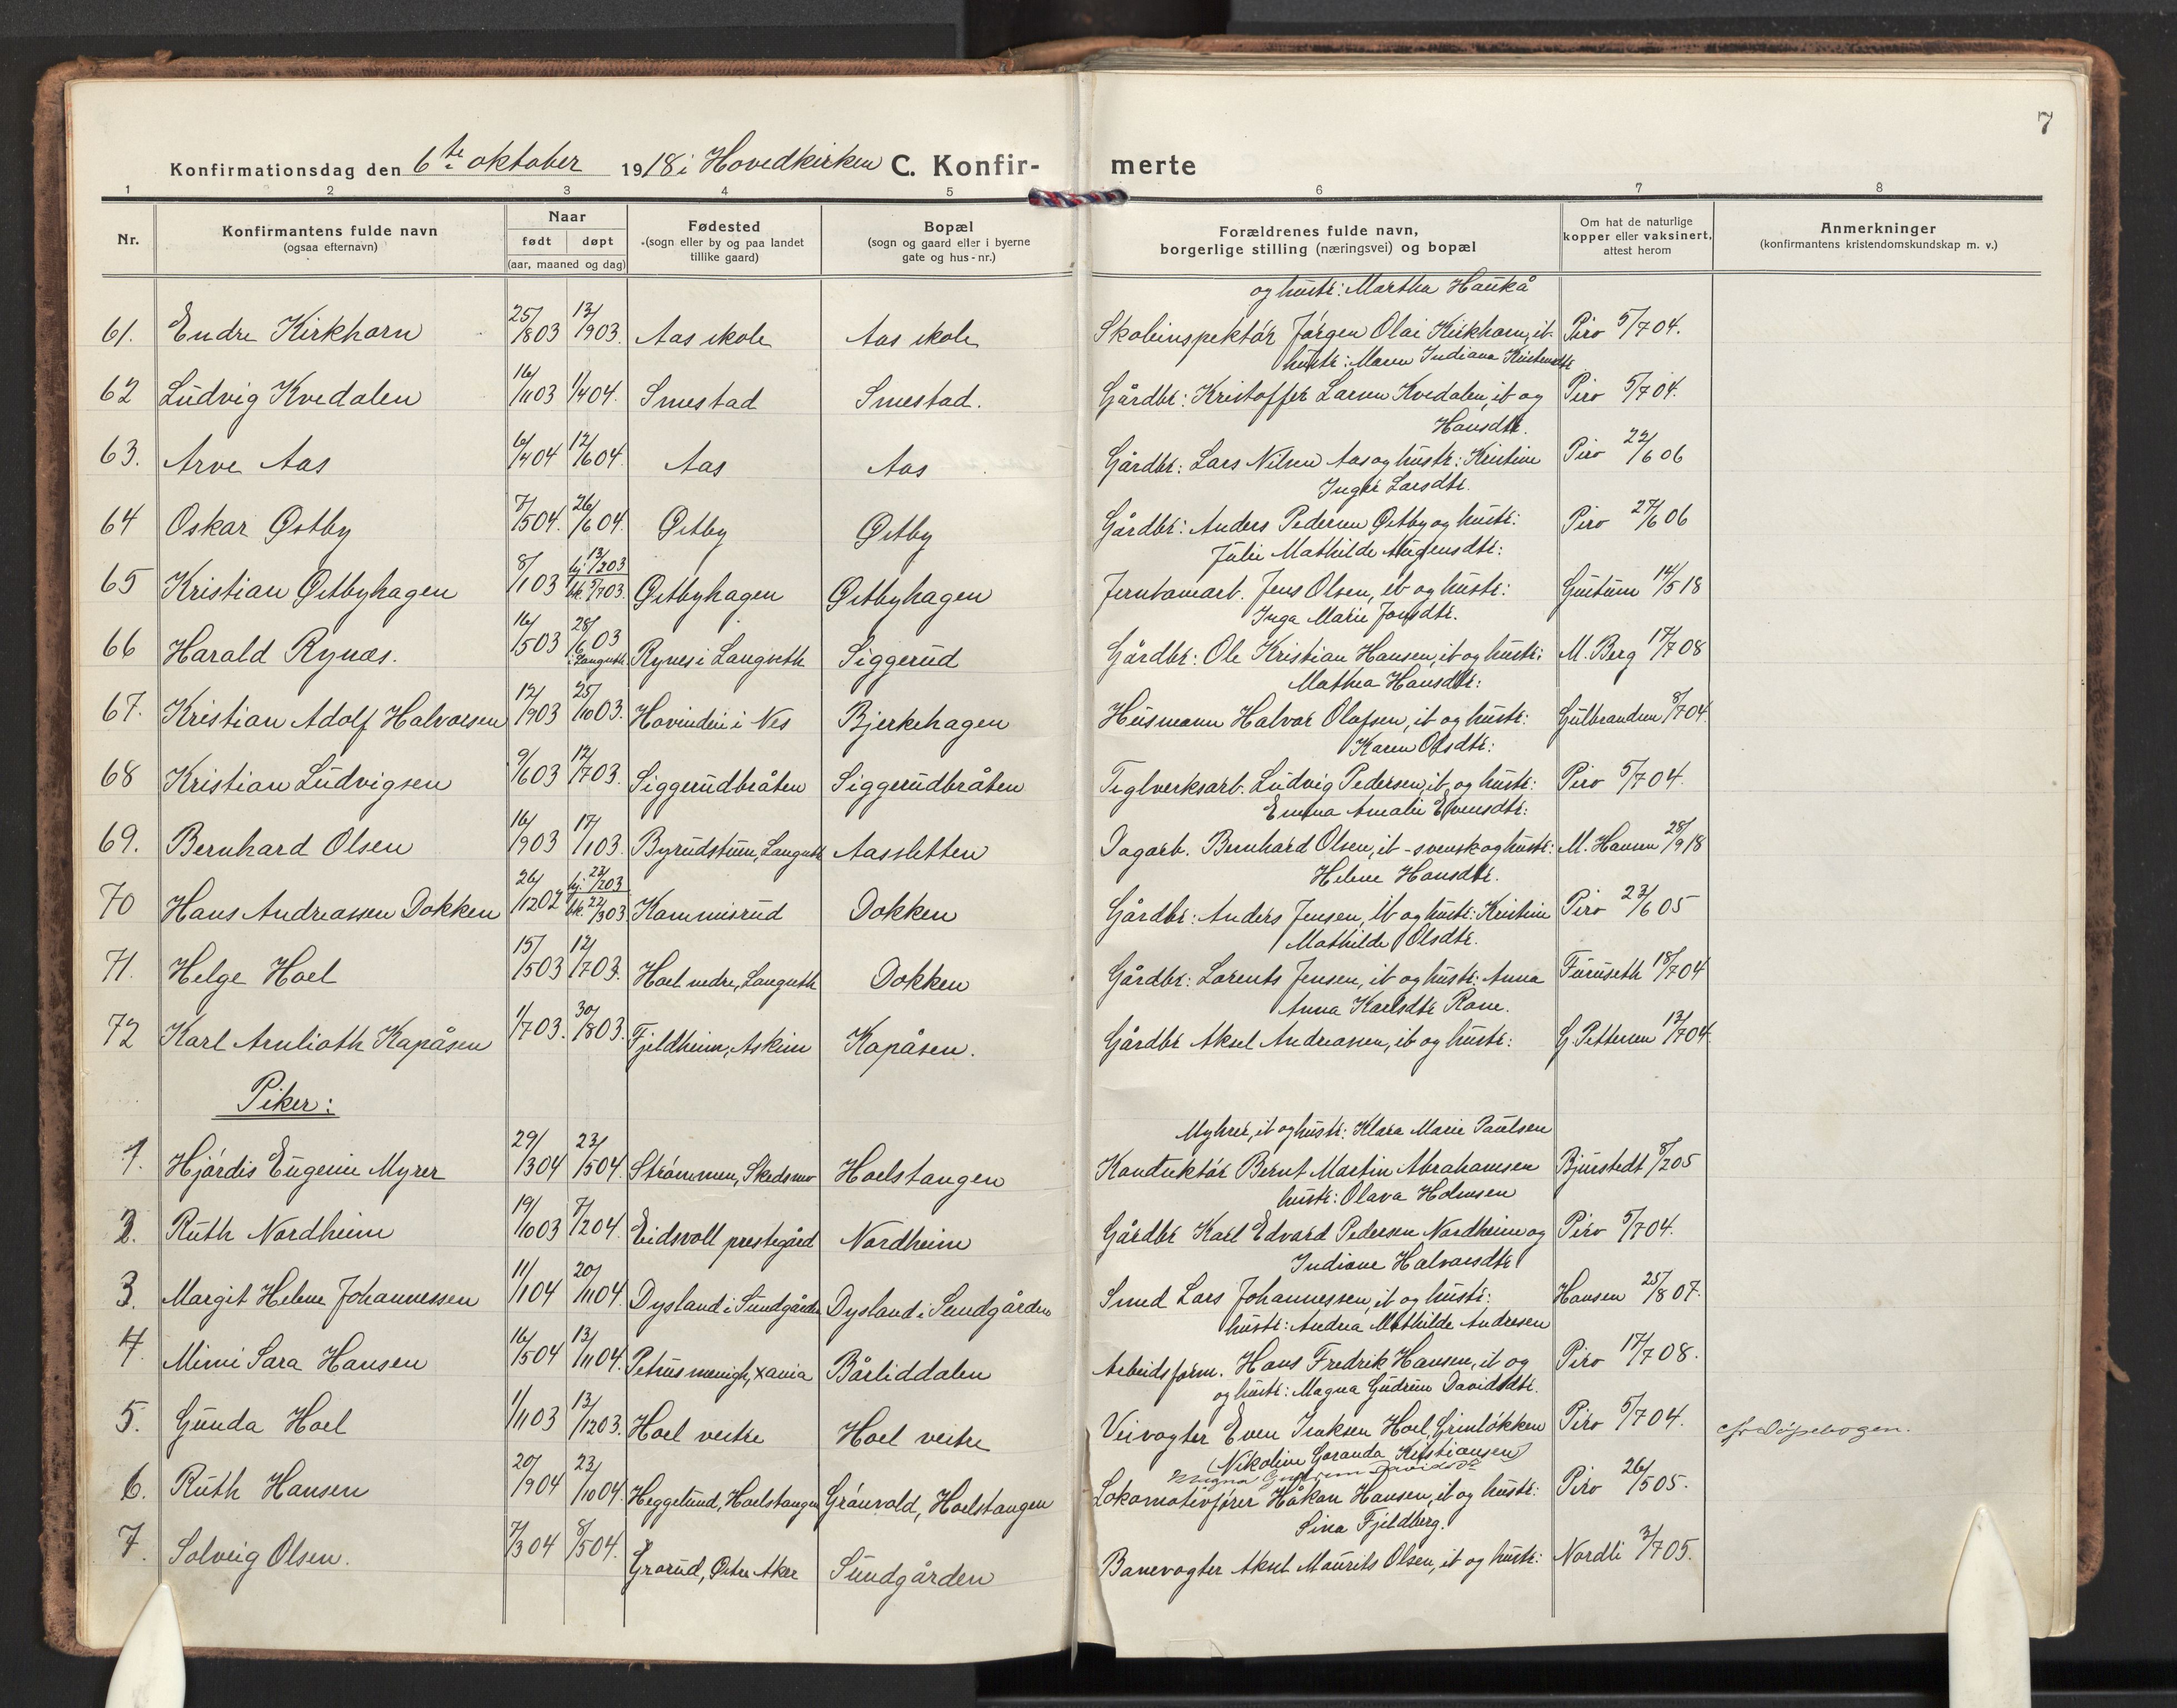 7
Konfirmationsdag den 6te oktober 1918 i Hovedkirken C. Konfirmerte
1 2 3 4 5 6 7 8
Nr. Konfirmantens fulde navn (ogsaa efternavn) Naar født døpt (aar, maaned og dag) Fødested (sogn eller by og paa landet tillike gaard) Bopæl (sogn og gaard eller i byerne gate og hus-nr.) Forældrenes fulde navn, borgerlige stilling (næringsvei) og bopæl Om hat de naturlige kopper eller vaksinert, attest herom Anmerkninger (konfirmantens kristendomskundskap m. v.)
og hustr: Martha Haukå
61. Endre Kirkhorn 25/803 13/903. Aas skole Aas skole Skoleinspektør Jørgen Olai Kirkhorn, ib. Piro 5/704.
hustr: Maren Indiana Kristensdtr
62 Ludvig Kvedalen 16/1103 1/404. Smestad Smestad. Gårdbr: Kristoffer Larsen Kvedalen, ib og Piro 5/704.
Hansdtr.
63. Arve Aas 6/404 12/604. Aas Aas Gårdbr: Lars Nilsen Aas og hustr: Kristine Piro 22/606
Inger Larsdtr.
64 Oskar Østby 7/504. 26/604. Østby Østby Gårdbr: Anders Pedersen Østby og hustr: Piro 27/606
Julie Mathilde Mogensdtr:
65 Kristian Østbyhagen 8/103 hj. 13/203 bk. 5/703. Østbyhagen Østbyhagen Jernbanearb. Jens Olsen, ib og hustr: Gustum 14/518
Inga Marie Jonsdtr.
66 Harald Rynæs. 16/503 28/603 i Langseth Rynes i Langseth Siggerud Gårdbr: Ole Kristian Hansen, ib og hustr: M. Berg 17/708
Mathea Hansdtr:
67. Kristian Adolf Halvorsen 12/903 25/1003. Hovinden i Nes Bjerkehagen Husmann Halvor Olafsen, ib og hustr: Gulbrandsen 8/704.
Karen Olsdtr:
68 Kristian Ludvigsen 9/603 12/703. Siggerudbråten Siggerudbråten Teglverksarb. Ludvig Pedersen, ib og hustr: Piro 5/704.
Emma Amalie Evensdtr:
69. Bernhard Olsen 16/903 17/103. Byrudstuen, Langseth Aassletten Dagarb. Bernhard Olsen, ib - svensk og hustr: M. Hansen 28/918
Helene Hansdtr.
70 Hans Andreassen Dokken 26/1202 hj. 23/203 bk. 22/303 Kammisrud Dokken Gårdbr: Anders Jensen, ib og hustr: Kristine Piro 23/605
Mathilde Olsdtr.
71. Helge Hoel 15/503 12/703. Hoel nedre, Langseth Dokken Gårdbr: Lorents Jensen, ib og hustr: Anna Furuseth 18/704
Anna Karlsdtr Rom.
72 Karl Arnljoth Kapåsen 1/703. 30/803. Fjeldheim, Askim Kapåsen. Gårdbr Aksel Andreassen, ib og hustr: G. Pettersen 13/704.
Piker:
Myhrer, ib og hustr: Klara Marie Paulsen
1. Hjørdis Eugenie Myrer 29/304 23/504. Strømmen, Skedsmo Hoelstangen Konduktør Bernt Martin Abrahamsen Bjurstedt 8/205
hustr: Olava Holmsen
2. Ruth Nordheim 19/1003 7/204. Eidsvoll prestegård Nordheim Gårdbr Karl Edvard Pedersen Nordheim og Piro 5/704.
Indiane Halvorsdtr
3. Margit Helene Johannessen 11/104 20/1104. Dysland i Sundgården Dysland i Sundgården Smed Lars Johannessen, ib og hustr: Hansen 25/807.
hustr: Andrea Mathilde Andresen
4. Mimi Sara Hansen 16/504 13/1104. Petrus menigh, Xania Bårliddalen Arbeidsform. Hans Fredrik Hansen, ib og Piro 17/708.
og hustr: Magna Gudrun Davidsdtr.
5. Gunda Hoel 1/1103 13/1203. Hoel vestre Hoel vestre Veivogter Even Isaksen Hoel, Grinløkken Piro 5/704. cfr Døpebogen.
(Nikoline Kristiansen)
6. Ruth Hansen 20/904 23/1004. Heggelund, Hoelstangen Grønvold, Hoelstangen Lokomotivfører Håkon Hansen, ib og hustr: Piro 26/505.
Sina Fjeldberg.
7. Solveig Olsen. 7/304 8/504. Grorud, Østre Aker Sundgården Banevogter Aksel Maurits Olsen, ib og hustr: Nordli 3/705.